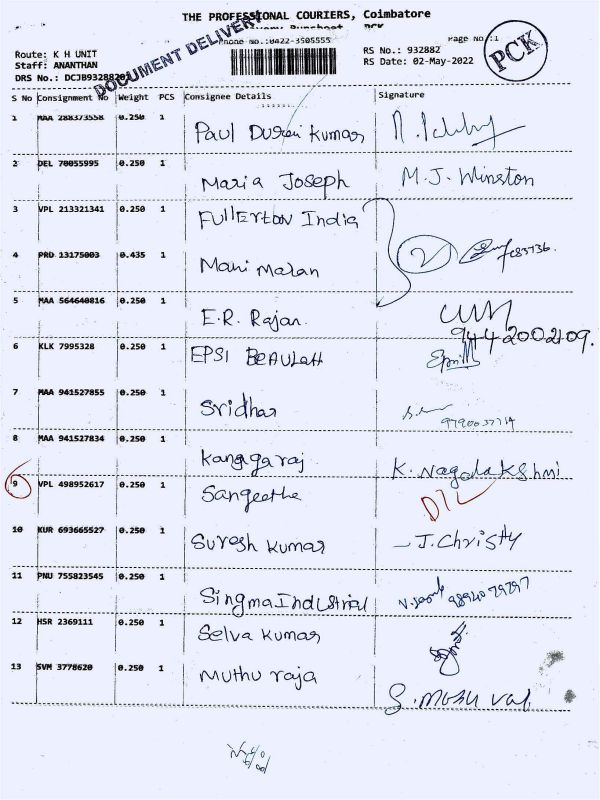 THE PROFESSIONAL COURIERS, Coimbatore
DOCUMENT DELIVERY
Phone No.:0422-3505555
Page No.:1
PCK
Route: K H UNIT
RS No.: 932882
Staff: ANANTHAN
RS Date: 02-May-2022
DRS No.:
S No Consignment No Weight PCS Consignee Details Signature
1 MAA 288373558 0.250 1 Paul Durai Kumar
2 DEL 70055995 0.250 1 Maria Joseph M.J. Winston
3 VPL 213321341 0.250 1 FullERton India
4 PRD 13175003 0.435 1 Mani Malan
5 MAA 564640816 0.250 1 E.R. Rajan
9442002109.
6 KLK 7995328 0.250 1 EPSI BEAULAH
7 MAA 941527855 0.250 1 Sridhar
8 MAA 941527834 0.250 1 Kanagaraj K. Nagalakshmi
9 VPL 498952617 0.250 1 Sangeetha
10 KUR 693665527 0.250 1 Suresh Kumar J. Christy
11 PNU 755823545 0.250 1 Singma Industrial
12 HSR 2369111 0.250 1 Selva Kumar
13 SVM 3778620 0.250 1 Muthu raja